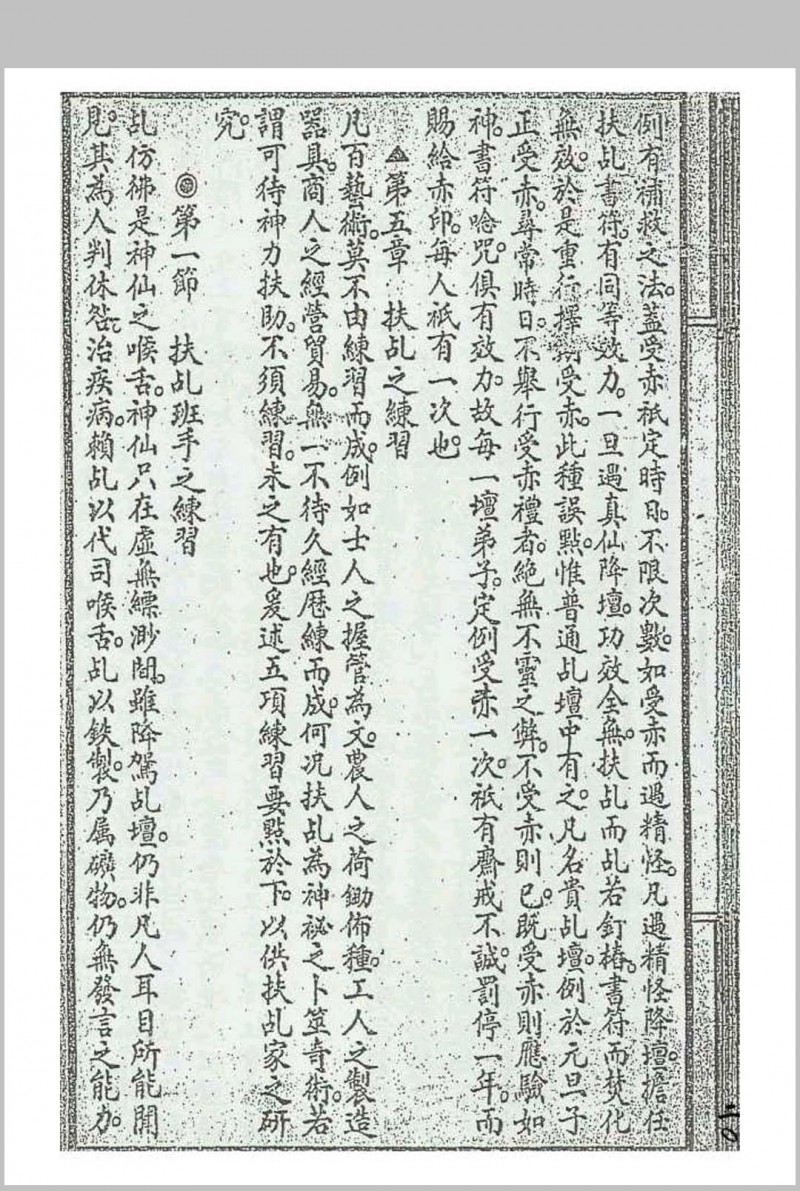 例有補救之法。蓋受赤祇定時日。不限次數。如受赤而遇精怪。凡遇精怪降壇。擔任
扶乩書符。有同等效力。一旦遇真仙降壇。功效全無。扶乩而乩若釘樁。書符而焚化
無效。於是重行擇期受赤。此種誤點。惟普通乩壇中有之。凡名貴乩壇。例於元旦子
正受赤。尋常時日。不舉行受赤禮者。絕無不靈之弊。不受赤則已。既受赤則應驗如
神。書符唸咒。俱有效力。故每一壇弟子。定例受赤一次。祇有齋戒不誠。罰停一年。而
賜給赤印。每人祇有一次也。
第五章 扶乩之練習
凡百藝術。莫不由練習而成。例如士人之握管為文。農人之荷鋤佈種。工人之製造
器具。商人之經營貿易。無一不待久經歷練而成。何况扶乩為神祕之卜筮奇術。若
謂可待神力扶助。不須練習。未之有也。爰述五項練習要點於下。以供扶乩家之研
究。
◎第一節 扶乩班手之練習
乩仿彿是神仙之喉舌。神仙只在虛無縹渺間。雖降駕乩壇。仍非凡人耳目所能聞
見。其為人判休咎。治疾病。賴乩以代司喉舌。乩以鉄製。乃属礦物。仍無發言之能力。